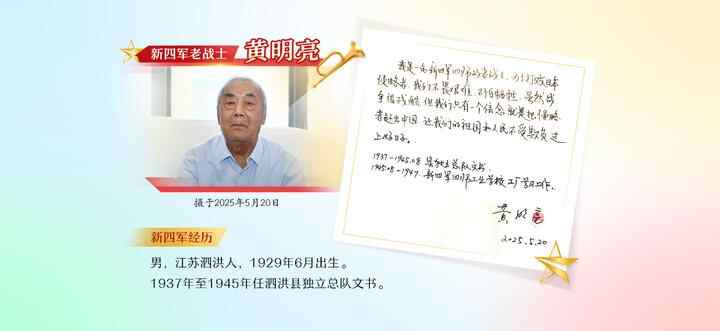 新四军老战士 黄明亮
摄于2025年5月20日
新四军经历
男，江苏泗洪人，1929年6月出生。
1937年至1945年任泗洪县独立总队文书。
我是一名新四军四师的老战士，为打败日本
侵略者，我们不畏艰难、不怕牺牲，虽然战
争很残酷，但我们只有一个信念，就是把侵略
者赶出中国，让我们的祖国和人民不受欺负，过
上好日子。
1937-1945.08 独立总队文书
1945.08-1947. 新四军四师卫生学校 工厂 工作。
黄明亮
2025.5.20